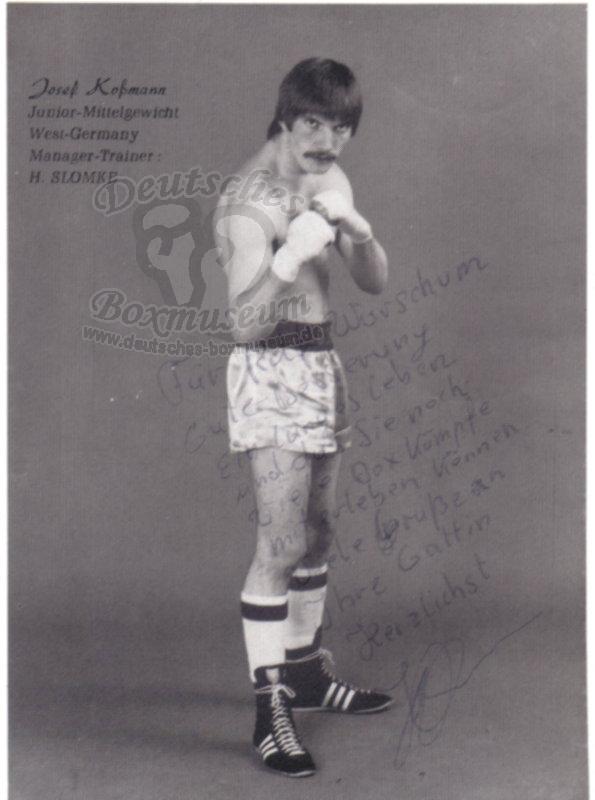 Josef Koßmann
Junior-Mittelgewicht
West-Germany
Manager-Trainer :
H. SLOMKE
Deutsches
Boxmuseum
www.deutsches-boxmuseum.de
Für Wurschum
Gute Besserung
ein langes Leben
und das Sie noch
viele Boxkämpfe
miterleben können
Viele Grüße an
Ihre Gattin
Herzlichst